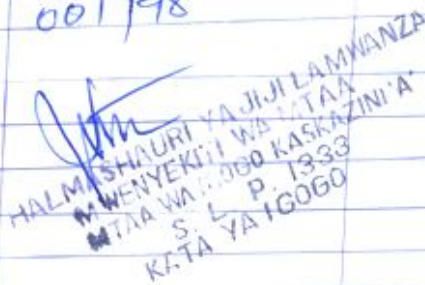 001/98
HALMASHAURI YA JIJI LA MWANZA
MWENYEKITI WA MTAA
MTAA WA IGOGO KASKAZINI 'A'
S. L. P. 1333
KATA YA IGOGO